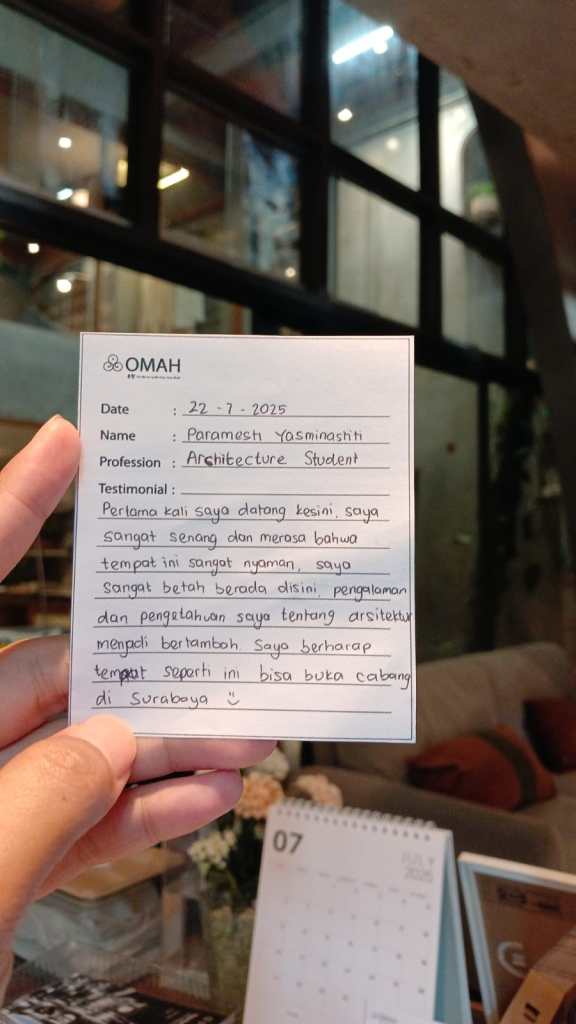 OMAH
Date : 22 - 7 - 2025
Name : Paramesti Yasminashti
Profession : Architecture Student
Testimonial :
Pertama kali saya datang kesini, saya
sangat senang dan merasa bahwa
tempat ini sangat nyaman, saya
sangat betah berada disini, pengalaman
dan pengetahuan saya tentang arsitektur
menjadi bertambah. Saya berharap
tempat seperti ini bisa buka cabang
di Surabaya
07
JULY
2025